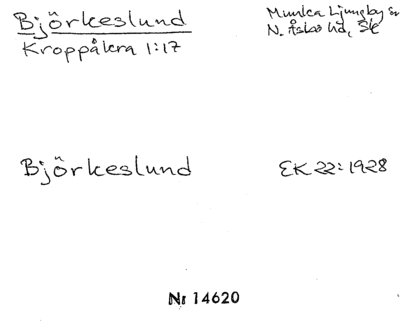 Björkeslund
Kroppåkra 1:17
Munka Ljungby sn
N. Åsbo hd, Sk
Björkeslund
EK 22:1928
Nr 14620